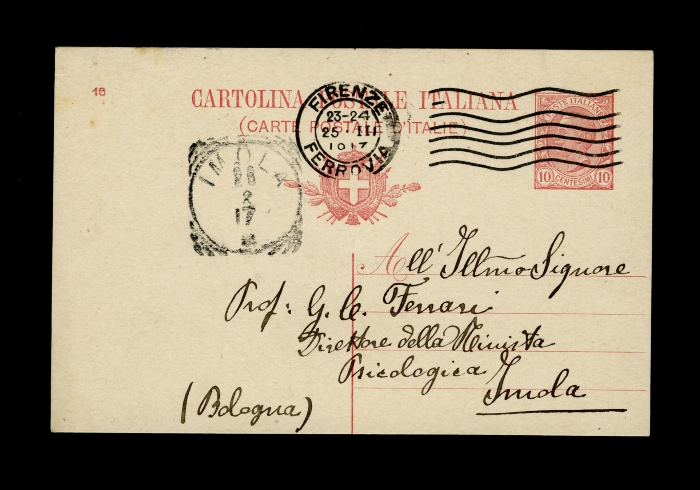 16
CARTOLINA POSTALE ITALIANA
(CARTE POSTALE D'ITALIE)
FIRENZE
23-24
25 III
1917
FERROVIA
IMOLA
26
3
17
POSTE ITALIANE
10 CENTESIMI 10
All' Illmo Signore
Prof: G. C. Ferrari
Direttore della Rivista
Psicologica
Imola
(Bologna)